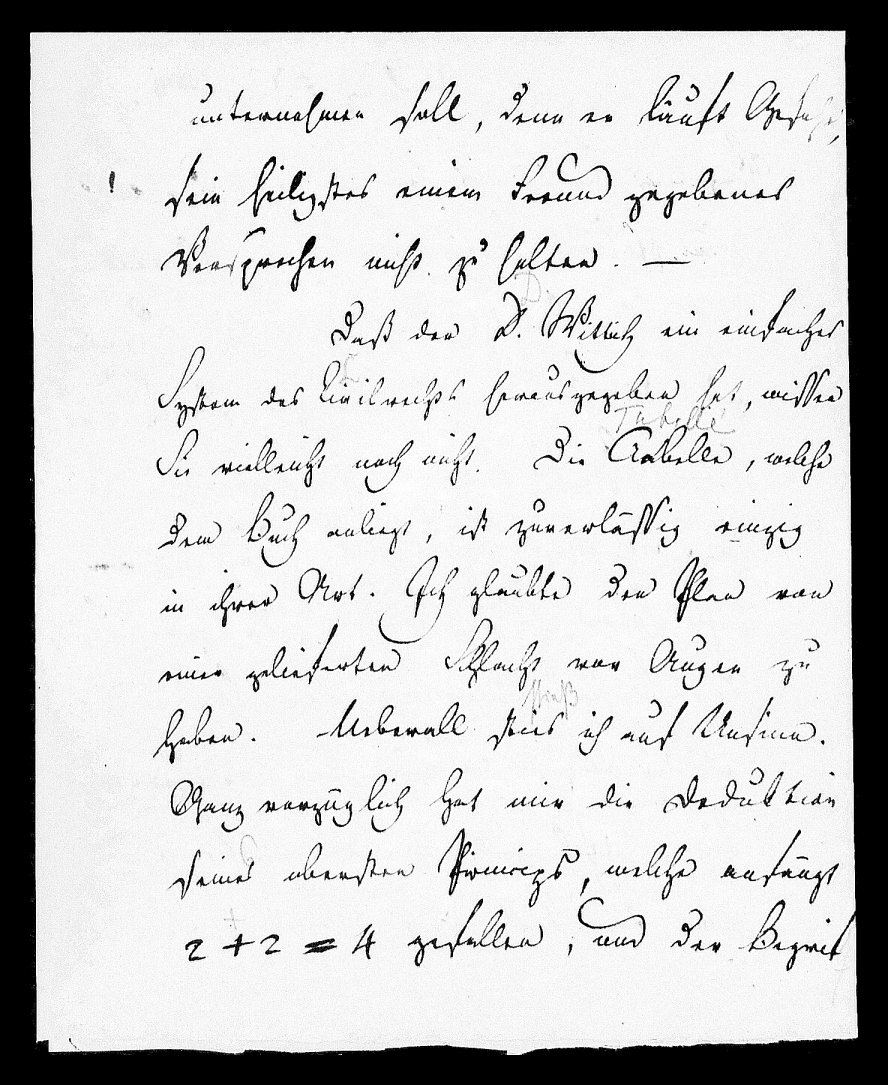 unternehmen soll, denn er läuft Gefahr,
sein heiligstes einem Freund gegebenes
Versprechen nicht zu halten. —
Daß der D. Wittich ein einfaches
System des Civilrechts herausgegeben hat, wissen
Tabelle
Sie vielleicht noch nicht. Die Tabelle, welche
dem Buch anliegt, ist zuverlässig einzig
in ihrer Art. Ich glaubte den Plan von
einer gelieferten Schlacht vor Augen zu
stieß
haben. Ueberall sties ich auf Unsinn.
Ganz vorzüglich hat mir die Deduktion
seines obersten Princips, welche anfängt
2 + 2 = 4 gefallen, und der Begrif